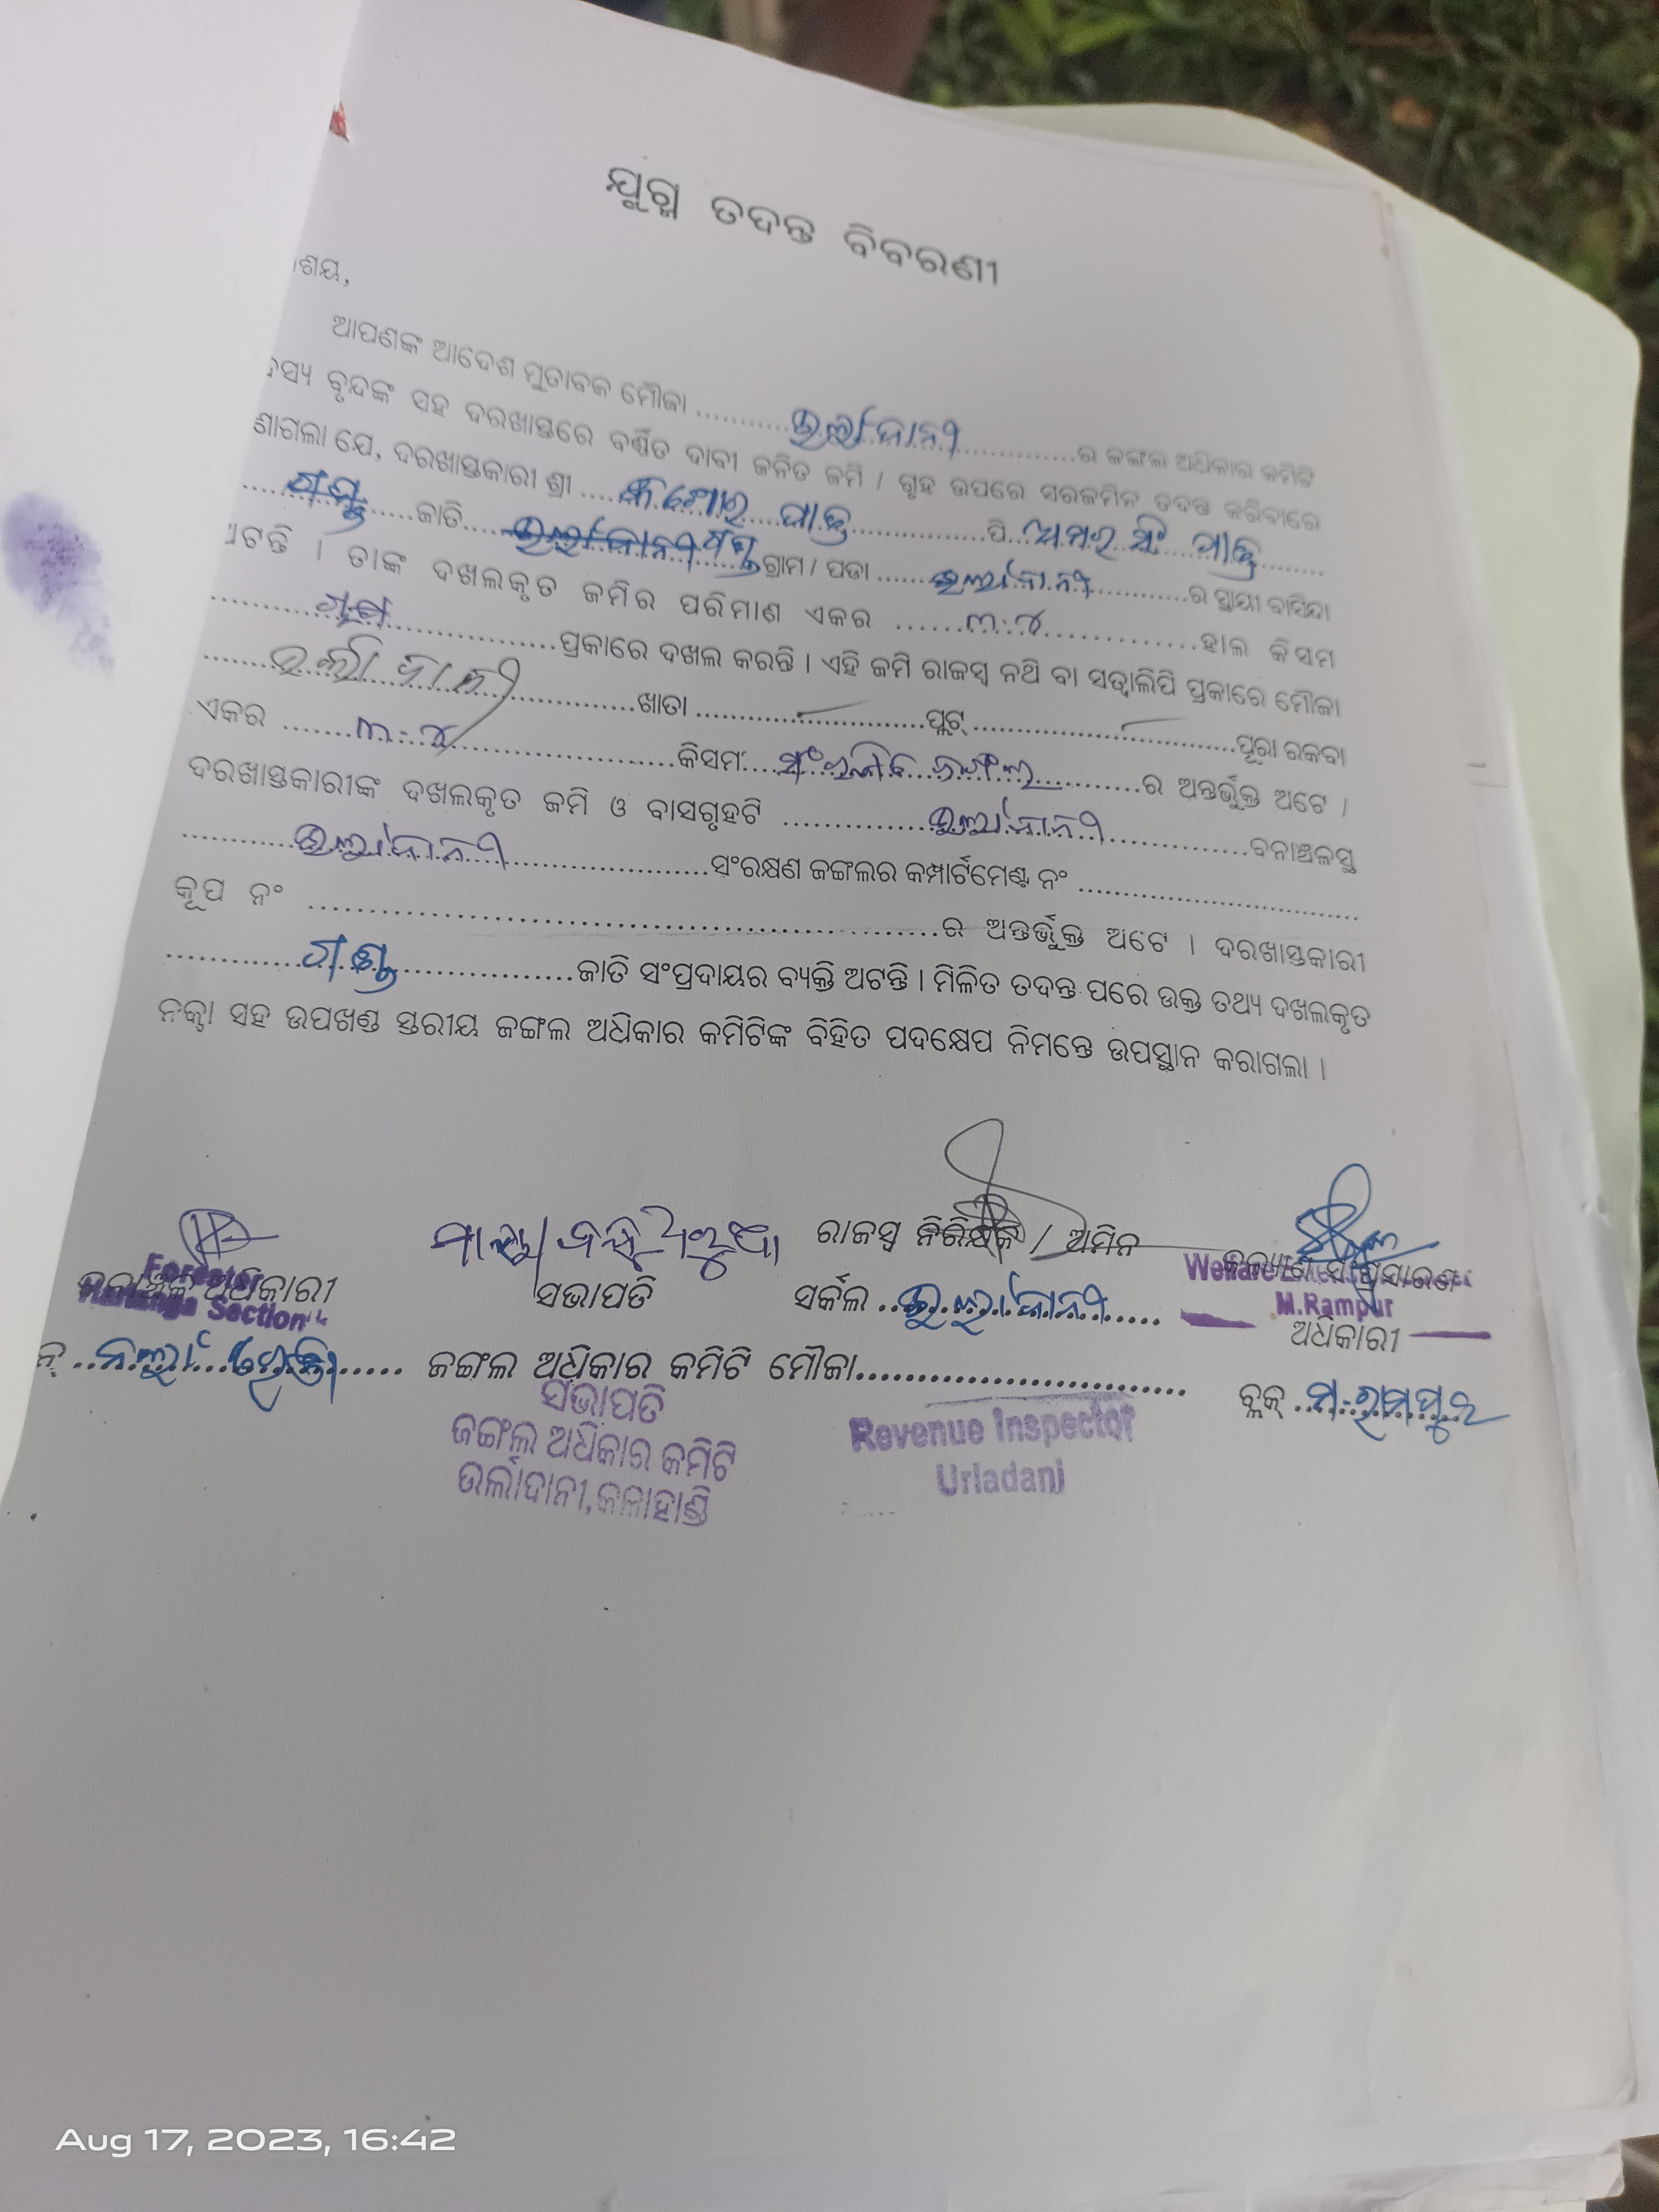 ଯୁଗ୍ମ ତଦନ୍ତ ବିବରଣୀ
ଶୟ,
ଆପଣଙ୍କ ଆଦେଶ ମୁତାବକ ମୌଜା ..........ଉର୍ଲାଦାନୀ..........ର ଜଙ୍ଗଲ ଅଧିକାର କମିଟି
ସଦସ୍ୟ ବୃନ୍ଦଙ୍କ ସହ ଦରଖାସ୍ତରେ ବର୍ଣ୍ଣିତ ଦାବୀ ଜନିତ ଜମି / ଗୃହ ଉପରେ ସରଜମିନ ତଦନ୍ତ କରିବାରେ
ଣାଗଲା ଯେ, ଦରଖାସ୍ତକାରୀ ଶ୍ରୀ ....କିଶୋର ପାତ୍ର..........ପି.ଅମର ସିଂ ପାତ୍ର..........
..........ଗଣ୍ଡ......ଜାତି..........ଗଣ୍ଡ ଗ୍ରାମ / ପଡା ......ଉର୍ଲାଦାନୀ..........ର ସ୍ଥାୟୀ ବାସିନ୍ଦା
ଅଟନ୍ତି । ତାଙ୍କ ଦଖଲକୃତ ଜମିର ପରିମାଣ ଏକର ......୩.୪..........ହାଲ କିସମ
....................ପ୍ରକାରେ ଦଖଲ କରନ୍ତି । ଏହି ଜମି ରାଜସ୍ୱ ନଥି ବା ସତ୍ୱାଲିପି ପ୍ରକାରେ ମୌଜା
......ଉର୍ଲାଦାନୀ..........ଖାତା ....................ପ୍ଲଟ୍ ....................ପୂରା ରକବା
ଏକର ......୩.୪..........କିସମ.................... ଜଙ୍ଗଲ..........ର ଅନ୍ତର୍ଭୁକ୍ତ ଅଟେ ।
ଦରଖାସ୍ତକାରୀଙ୍କ ଦଖଲକୃତ ଜମି ଓ ବାସଗୃହଟି ..........ଉର୍ଲାଦାନୀ..........ବନାଞ୍ଚଳସ୍ଥ
..........ଉର୍ଲାଦାନୀ..........ସଂରକ୍ଷଣ ଜଙ୍ଗଲର କମ୍ପାର୍ଟମେଣ୍ଟ ନଂ ..............................
କୂପ ନଂ ........................................ର ଅନ୍ତର୍ଭୁକ୍ତ ଅଟେ । ଦରଖାସ୍ତକାରୀ
..........ଗଣ୍ଡ..........ଜାତି ସଂପ୍ରଦାୟର ବ୍ୟକ୍ତି ଅଟନ୍ତି । ମିଳିତ ତଦନ୍ତ ପରେ ଉକ୍ତ ତଥ୍ୟ ଦଖଲକୃତ
ନକ୍ସା ସହ ଉପଖଣ୍ଡ ସ୍ତରୀୟ ଜଙ୍ଗଲ ଅଧିକାର କମିଟିଙ୍କ ବିହିତ ପଦକ୍ଷେପ ନିମନ୍ତେ ଉପସ୍ଥାନ କରାଗଲା ।
ରାଜସ୍ୱ ନିରିକ୍ଷକ / ଅମିନ
Forester
ବନାଞ୍ଚଳ ଅଧିକାରୀ
Section
ସଭାପତି
ସର୍କଲ ..ଉର୍ଲାଦାନୀ......
କଲ୍ୟାଣ ସଂପ୍ରସାରଣ
Welfare
M.Rampur
ଅଧିକାରୀ
ନ୍ .................... ଜଙ୍ଗଲ ଅଧିକାର କମିଟି ମୌଜା..............................
ବ୍ଲକ୍ ..ମ.ରାମପୁର
ସଭାପତି
ଜଙ୍ଗଲ ଅଧିକାର କମିଟି
ଉର୍ଲାଦାନୀ,କଳାହାଣ୍ଡି
Revenue Inspector
Urladani
Aug 17, 2023, 16:42